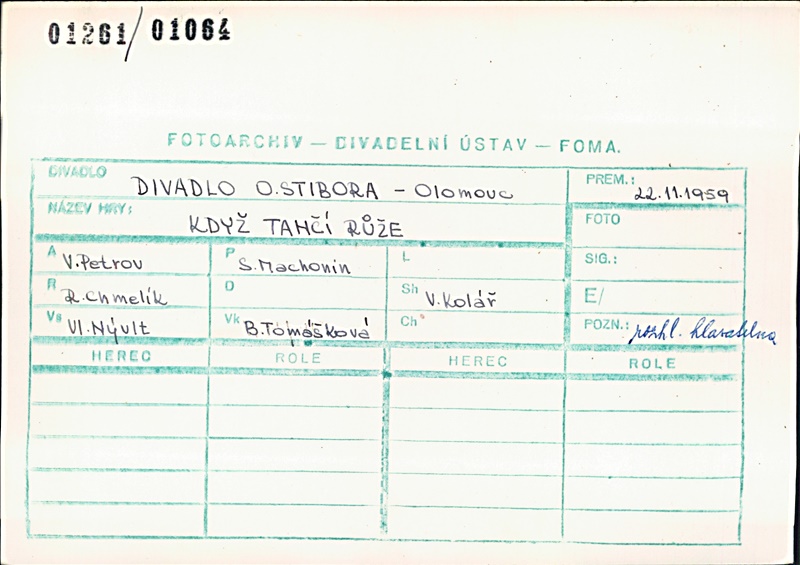 01261/01064
FOTOARCHIV — DIVADELNÍ ÚSTAV — FOMA.
DIVADLO DIVADLO O.STIBORA – Olomouc
PREM.: 22.11.1959
NÁZEV HRY: KDYŽ TANČÍ RŮŽE
FOTO
A V.Petrov P S.Machonin L
SIG.:
R R.Chmelík D Sh V.Kolář
E/
Vs Vl.Nývlt Vk B.Tomášková Ch
POZN.:
HEREC ROLE HEREC ROLE